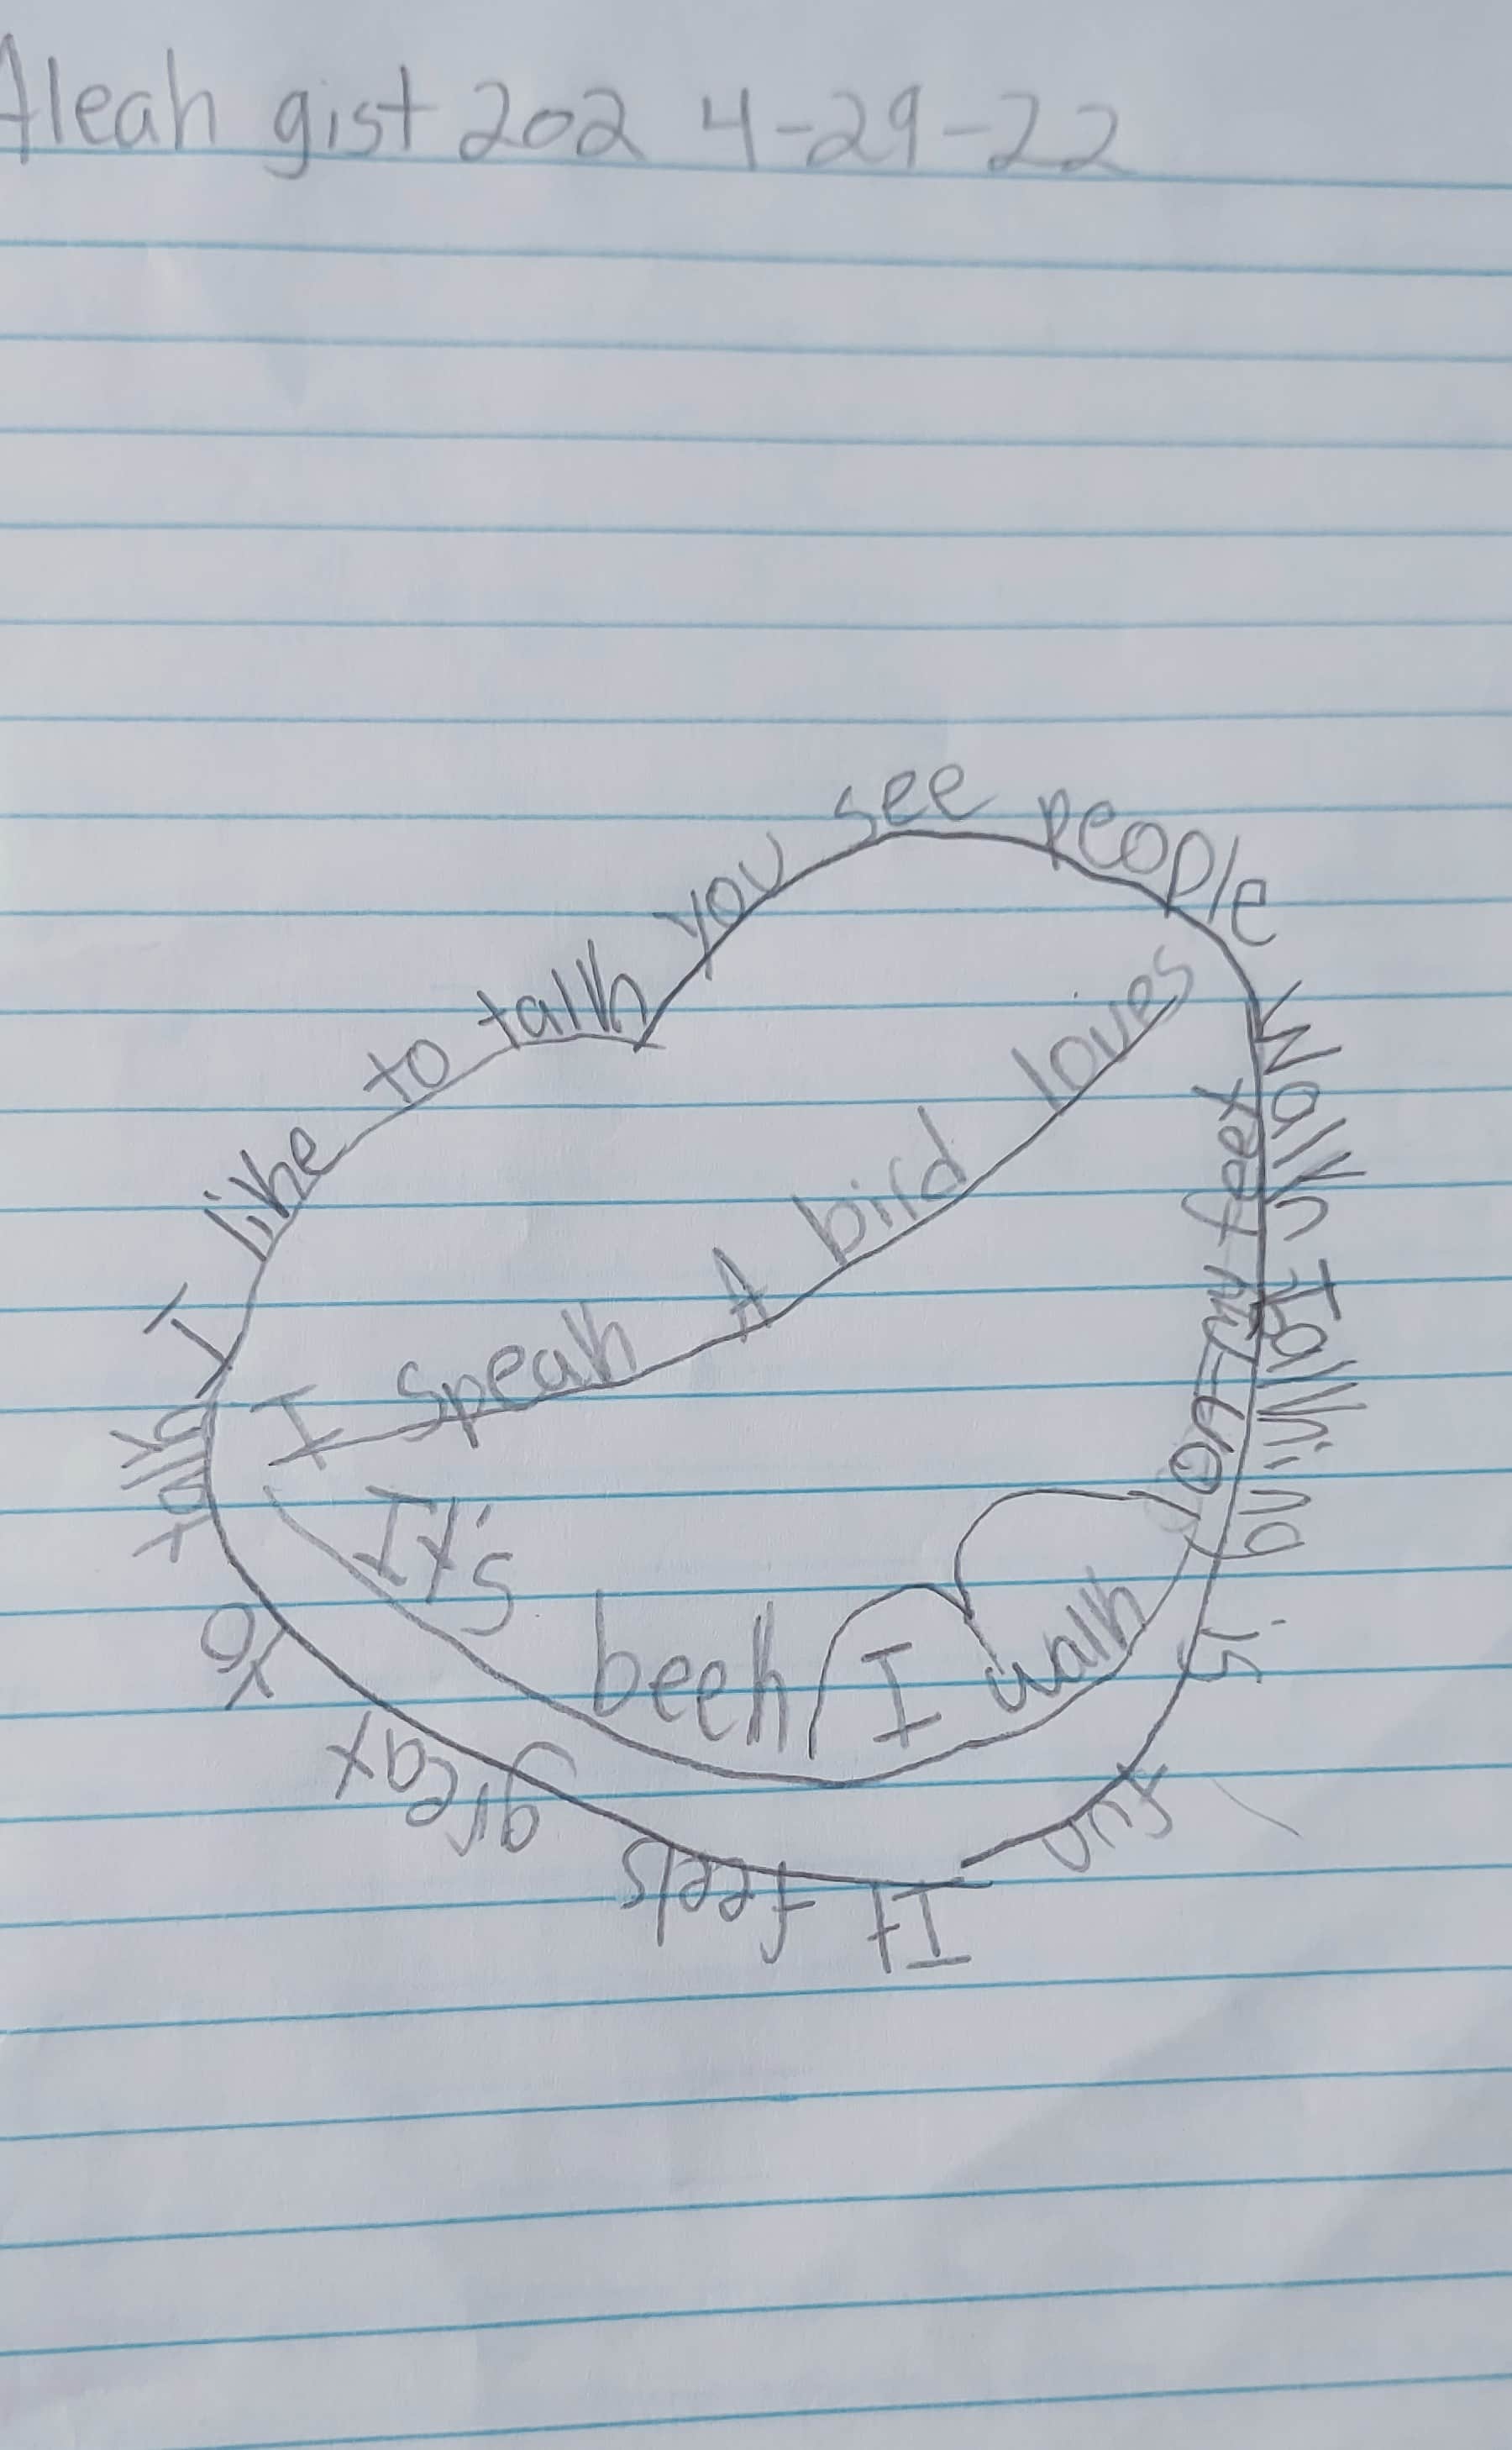 Aleah gist 202 4-29-22
I like to talk you see people walk Talking is fun
It feels great to talk
I speak A bird loves
It's beek
I walk
on my feet